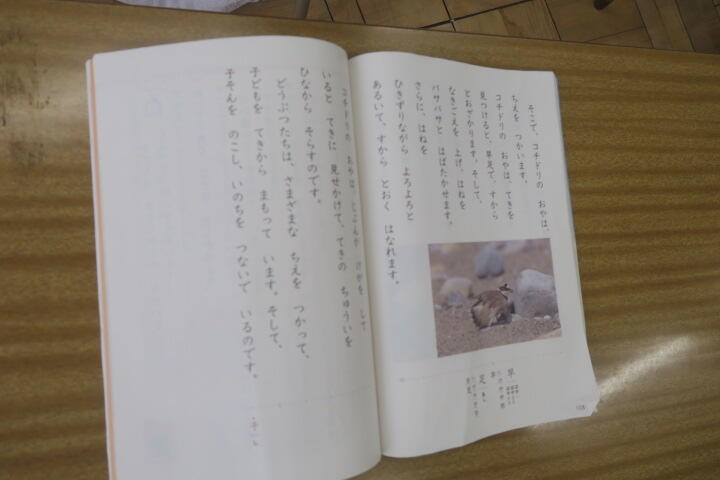 そこで、コチドリの おやは、
ちえを つかいます。
コチドリの おやは、てきを
見つけると、早足で、すから
とおざかります。そして、
なきごえを 上げ、はねを
バサバサと はばたかせます。
さらに、はねを
ひきずりながら よろよろと
あるいて、すから とおく はなれます。
早
足
108
コチドリの おやは じぶんが けがを して
いると てきに 見せかけて、てきの ちゅういを
ひなから そらすのです。
どうぶつたちは、さまざまな ちえを つかって、
子どもを てきから まもって います。そして、
子そんを のこし、いのちを つないで いるのです。